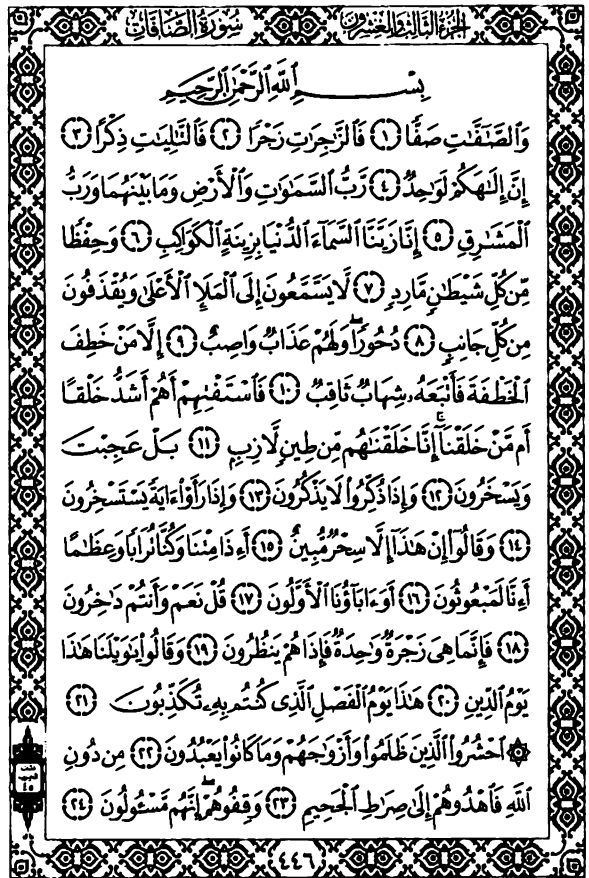 الجزء الثالث والعشرون سورة الصافات
بِسْمِ ٱللَّهِ ٱلرَّحْمَٰنِ ٱلرَّحِيمِ
وَٱلصَّٰٓفَّٰتِ صَفًّا ﴿١﴾ فَٱلزَّٰجِرَٰتِ زَجْرًا ﴿٢﴾ فَٱلتَّٰلِيَٰتِ ذِكْرًا ﴿٣﴾
إِنَّ إِلَٰهَكُمْ لَوَٰحِدٌ ﴿٤﴾ رَّبُّ ٱلسَّمَٰوَٰتِ وَٱلْأَرْضِ وَمَا بَيْنَهُمَا وَرَبُّ
ٱلْمَشَٰرِقِ ﴿٥﴾ إِنَّا زَيَّنَّا ٱلسَّمَآءَ ٱلدُّنْيَا بِزِينَةٍ ٱلْكَوَاكِبِ ﴿٦﴾ وَحِفْظًا
مِّن كُلِّ شَيْطَٰنٍ مَّارِدٍ ﴿٧﴾ لَّا يَسَّمَّعُونَ إِلَى ٱلْمَلَإِ ٱلْأَعْلَىٰ وَيُقْذَفُونَ
مِن كُلِّ جَانِبٍ ﴿٨﴾ دُحُورًا ۖ وَلَهُمْ عَذَابٌ وَاصِبٌ ﴿٩﴾ إِلَّا مَنْ خَطِفَ
ٱلْخَطْفَةَ فَأَتْبَعَهُۥ شِهَابٌ ثَاقِبٌ ﴿١٠﴾ فَٱسْتَفْتِهِمْ أَهُمْ أَشَدُّ خَلْقًا
أَم مَّنْ خَلَقْنَآ ۚ إِنَّا خَلَقْنَٰهُم مِّن طِينٍ لَّازِبٍ ﴿١١﴾ بَلْ عَجِبْتَ
وَيَسْخَرُونَ ﴿١٢﴾ وَإِذَا ذُكِّرُوا۟ لَا يَذْكُرُونَ ﴿١٣﴾ وَإِذَا رَأَوْا۟ ءَايَةً يَسْتَسْخِرُونَ
﴿١٤﴾ وَقَالُوٓا۟ إِنْ هَٰذَآ إِلَّا سِحْرٌ مُّبِينٌ ﴿١٥﴾ أَءِذَا مِتْنَا وَكُنَّا تُرَابًا وَعِظَٰمًا
أَءِنَّا لَمَبْعُوثُونَ ﴿١٦﴾ أَوَءَابَآؤُنَا ٱلْأَوَّلُونَ ﴿١٧﴾ قُلْ نَعَمْ وَأَنتُمْ دَٰخِرُونَ
﴿١٨﴾ فَإِنَّمَا هِىَ زَجْرَةٌ وَٰحِدَةٌ فَإِذَا هُمْ يَنظُرُونَ ﴿١٩﴾ وَقَالُوا۟ يَٰوَيْلَنَا هَٰذَا
يَوْمُ ٱلدِّينِ ﴿٢٠﴾ هَٰذَا يَوْمُ ٱلْفَصْلِ ٱلَّذِى كُنتُم بِهِۦ تُكَذِّبُونَ ﴿٢١﴾
۞ ٱحْشُرُوا۟ ٱلَّذِينَ ظَلَمُوا۟ وَأَزْوَٰجَهُمْ وَمَا كَانُوا۟ يَعْبُدُونَ ﴿٢٢﴾ مِن دُونِ
ٱللَّهِ فَٱهْدُوهُمْ إِلَىٰ صِرَٰطِ ٱلْجَحِيمِ ﴿٢٣﴾ وَقِفُوهُمْ ۖ إِنَّهُم مَّسْـُٔولُونَ ﴿٢٤﴾
٤٤٦